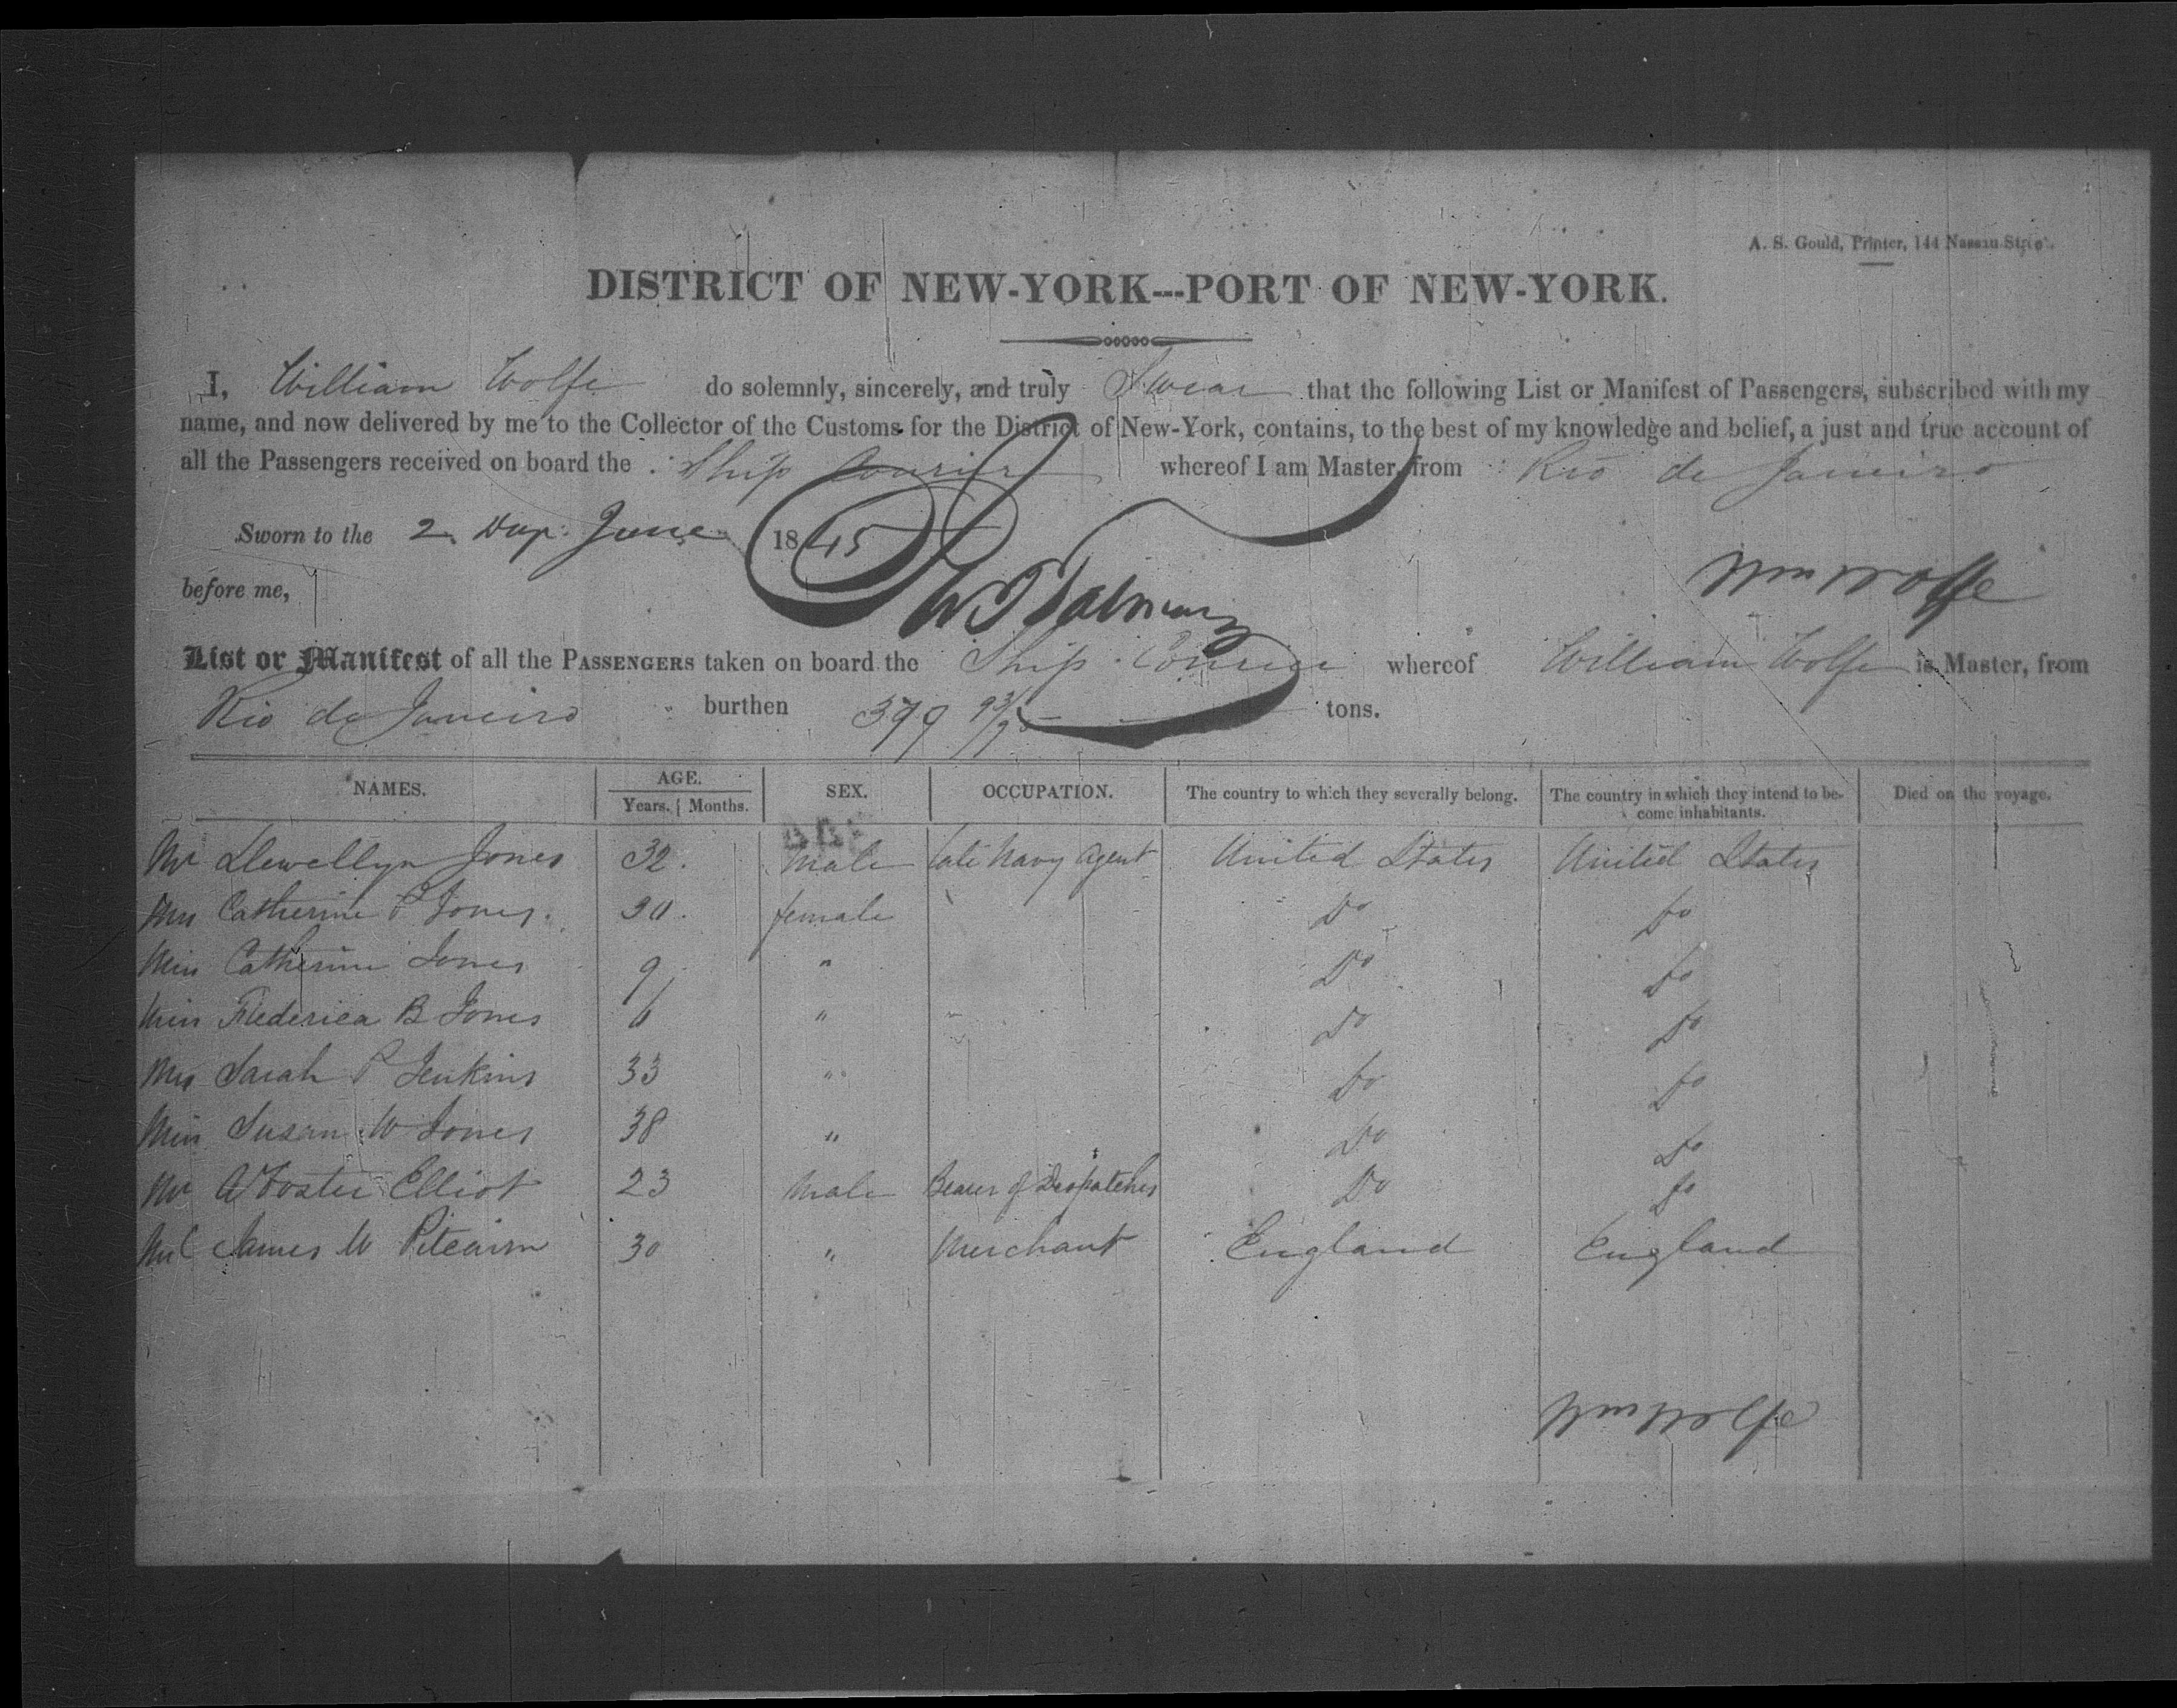 A. S. Gould, Printer, 144 Nassau
DISTRICT OF NEW-YORK---PORT OF NEW-YORK.
I, William Wolfe do solemnly, sincerely, and truly Swear that the following List or Manifest of Passengers, subscribed with my
name, and now delivered by me to the Collector of the Customs for the District of New-York, contains, to the best of my knowledge and belief, a just and true account of
all the Passengers received on board the Ship Courier whereof I am Master, from Rio de Janeiro
Sworn to the 2 Day June 1845
Wm Wolfe
before me,
List or Manifest of all the PASSENGERS taken on board the Ship Courier whereof William Wolfe is Master, from
Rio de Janeiro burthen tons.
NAMES. AGE. SEX. OCCUPATION. The country to which they severally belong. The country in which they intend to be- Died on the voyage.
Years. Months. come inhabitants.
Mr Llewellyn Jones 32. Male late Navy Agent United States United States
Mrs Catherine P Jones. 30. female Do Do
Miss Catherine Jones 9 " Do Do
Miss Frederica B Jones 6 " Do Do
Mrs Sarah P Jenkins 33 " Do Do
Miss Susan W Jones 38 " Do Do
Mr Foster Elliot 23 Male Bearer of Despatches Do Do
James W Pitcairn 30 " Merchant England England
Wm Wolfe